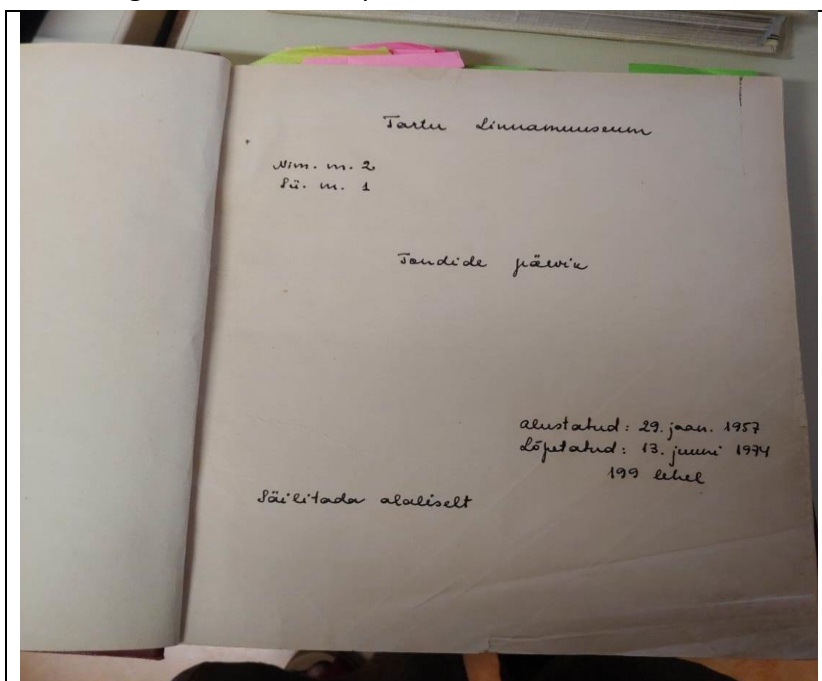 Tartu Linnamuuseum
Nim. m. 2
Sü. m. 1
Fondide päevik
alustatud: 29. jaan. 1957
Lõpetatud: 13. juuni 1974
199 lehel
Säilitada alaliselt